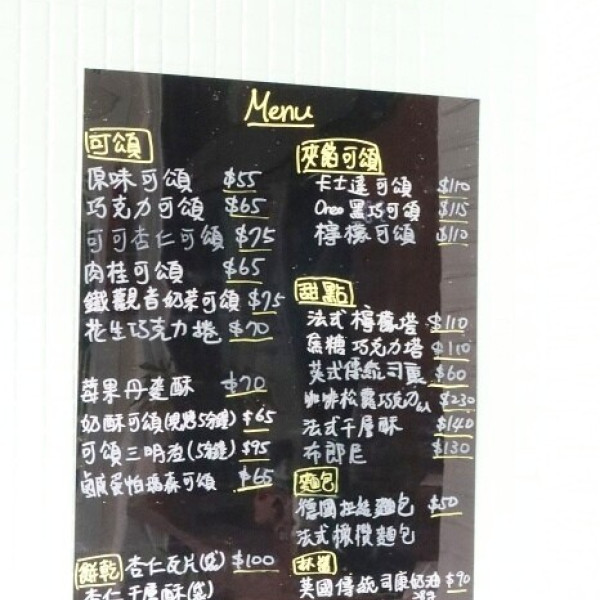 Menu
可頌
原味可頌 $55
巧克力可頌 $65
可可杏仁可頌 $75
肉桂可頌 $65
鐵觀音奶茶可頌 $75
花生巧克力捲 $70
莓果丹麥酥 $70
奶酥可頌(現烤5分鐘) $65
可頌三明治(5分鐘) $95
鹹蛋帕瑪森可頌 $65
餅乾 杏仁瓦片(袋) $100
杏仁千層酥(袋)
夾餡可頌
卡士達可頌 $110
Oreo黑巧可頌 $115
檸檬可頌 $110
甜點
法式檸檬塔 $110
焦糖巧克力塔 $110
英式傳統司康 $60
咖啡松露巧克力 $230
法式千層酥 $140
布朗尼 $130
麵包
德國扭結麵包 $50
法式橄欖麵包
抹醬
英國傳統司康奶油 $90